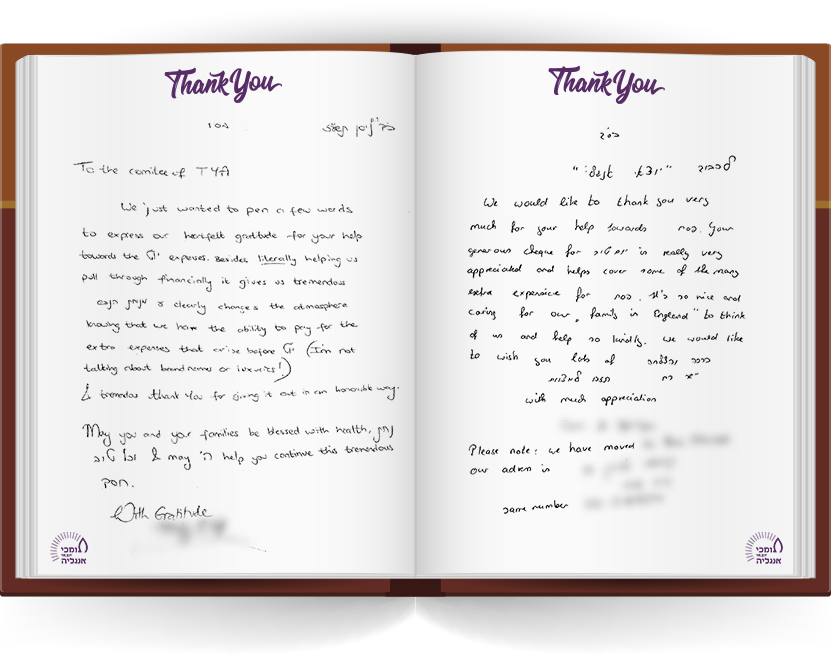 Thank You
בס"ד
To the comitee of TYA
We just wanted to pen a few words
to express our heartfelt gratitude for your help
towards the יו"ט expenses. Besides literally helping us
pull through financially it gives us tremendous
& clearly changes the atmosphere
knowing that we have the ability to pay for the
extra expenses that arise before יו"ט (I'm not
talking about brand name or luxuries!)
A tremendous thank you for giving it out in an honorable way.
May you and your families be blessed with health,
וכל טוב & may ה' help you continue this tremendous
חסד.
With Gratitude
תומכי
אנגליה
Thank You
בס"ד
לכבוד
We would like to thank you very
much for your help towards פסח. Your
generous cheque for יום טוב is really very
appreciated and helps cover some of the many
extra expensice for פסח. It's so nice and
caring for our "family in England" to think
of us and help so kindly. We would like
to wish you lots of ברכה והצלחה
with much appreciation
Please note: we have moved
our adress is
same number
תומכי
אנגליה